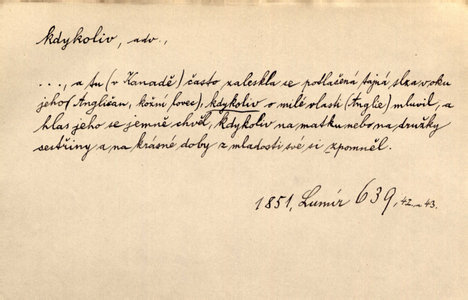 kdykoliv, adv.,
..., a tu (v Kanadě) často zaleskla se potlačená tajná slza v oku
jeho (Angličan, kožní lovec), kdykoliv o milé vlasti (Anglie) mluvil, a
hlas jeho se jemně chvěl, kdykoliv na matku nebo na družky
sestřiny a na krásné doby z mladosti své si zpomněl.
1851, Lumír 639, 42. a 43.